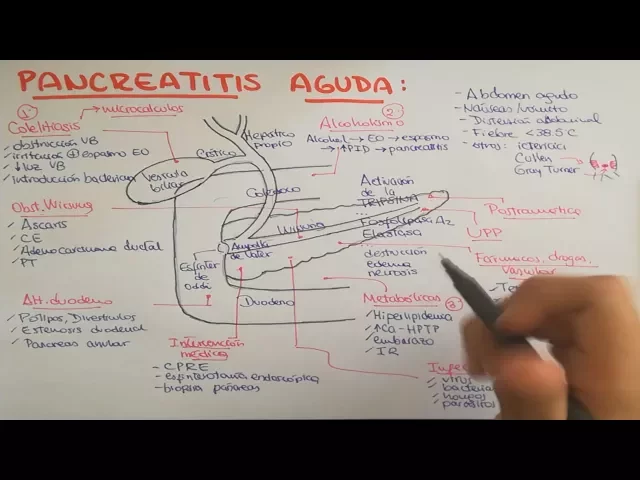 PANCREATITIS AGUDA:
①
→ microcálculos
Colelitiasis
✓ obstrucción VB
✓ irritación ⊕ espasmo EO
✓ ↓ luz VB
✓ introducción bacterias
Obst. Wirsung
✓ Ascaris
✓ CE
✓ Adenocarcinoma ductal
✓ PT
Alt. duodeno
✓ Pólipos, Divertículos
✓ Estenosis duodenal
✓ Pancreas anular
Vesícula
biliar
Cístico
Hepático
Propio
Colédoco
Wirsung
Ampolla
de Vater
Esfínter
de
Oddi
Duodeno
Intervención
médica
- CPRE
- esfinterotomía endoscópica
- biopsia páncreas
②
Alcoholismo
Alcohol → EO → espasmo
→ ↑PID → pancreatitis
Activación
de la
TRIPSINA
Fosfolipasa A2
Elastasa
destrucción
edema
necrosis
Metabólicas ③
✓ Hiperlipidemia
✓ ↑Ca - HPTP
✓ embarazo
✓ IR
- Abdomen agudo
- Náuseas/vómito
- Distensión abdominal
- Fiebre < 38.5 C
- otros: ictericia
Cullen
Gray Turner
Postraumática
UPP
Fármacos, drogas,
Vascular
✓ virus
✓ bacterias
✓ hongos
✓ parásitos